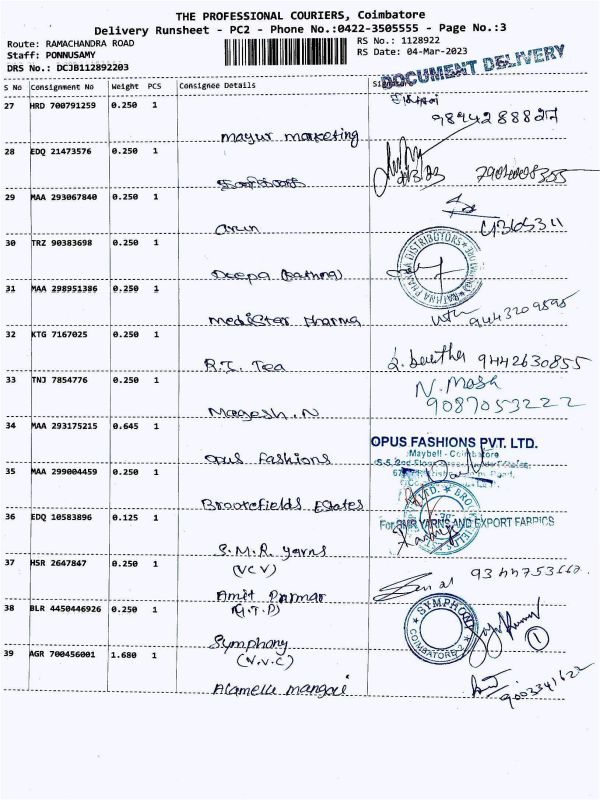 THE PROFESSIONAL COURIERS, Coimbatore
Delivery Runsheet - PC2 - Phone No.:0422-3505555 - Page No.:3
Route: RAMACHANDRA ROAD
RS No.: 1128922
Staff: PONNUSAMY
RS Date: 04-Mar-2023
DRS No.: DCJB112892203
DOCUMENT DELIVERY
S No Consignment No Weight PCS Consignee Details
27 HRD 700791259 0.250 1
Mayur marketing
28 EDQ 21473576 0.250 1
29 MAA 293067840 0.250 1
Arun
30 TRZ 90383698 0.250 1
DISTRIBUTORS
Deepa (Rathna)
31 MAA 298951386 0.250 1
Medistar Pharma
32 KTG 7167025 0.250 1
R.I. Tea
9442630855
33 TNJ 7854776 0.250 1
N. Mosh
Magesh.N
9087053222
34 MAA 293175215 0.645 1
OPUS FASHIONS PVT. LTD.
Maybell - Coimbatore
Opus Fashions
35 MAA 299004459 0.250 1
Brookefields Estates
36 EDQ 10583896 0.125 1
For SMR YARNS AND EXPORT FABRICS
S.M.R yarns
(V.C.V)
37 HSR 2647847 0.250 1
Amit Parmar
(H.T.P)
38 BLR 4450446926 0.250 1
SYMPHONY
COIMBATORE-2
1
Symphony
(V.V.C)
39 AGR 700456001 1.680 1
Alamelu mangai
9003341622